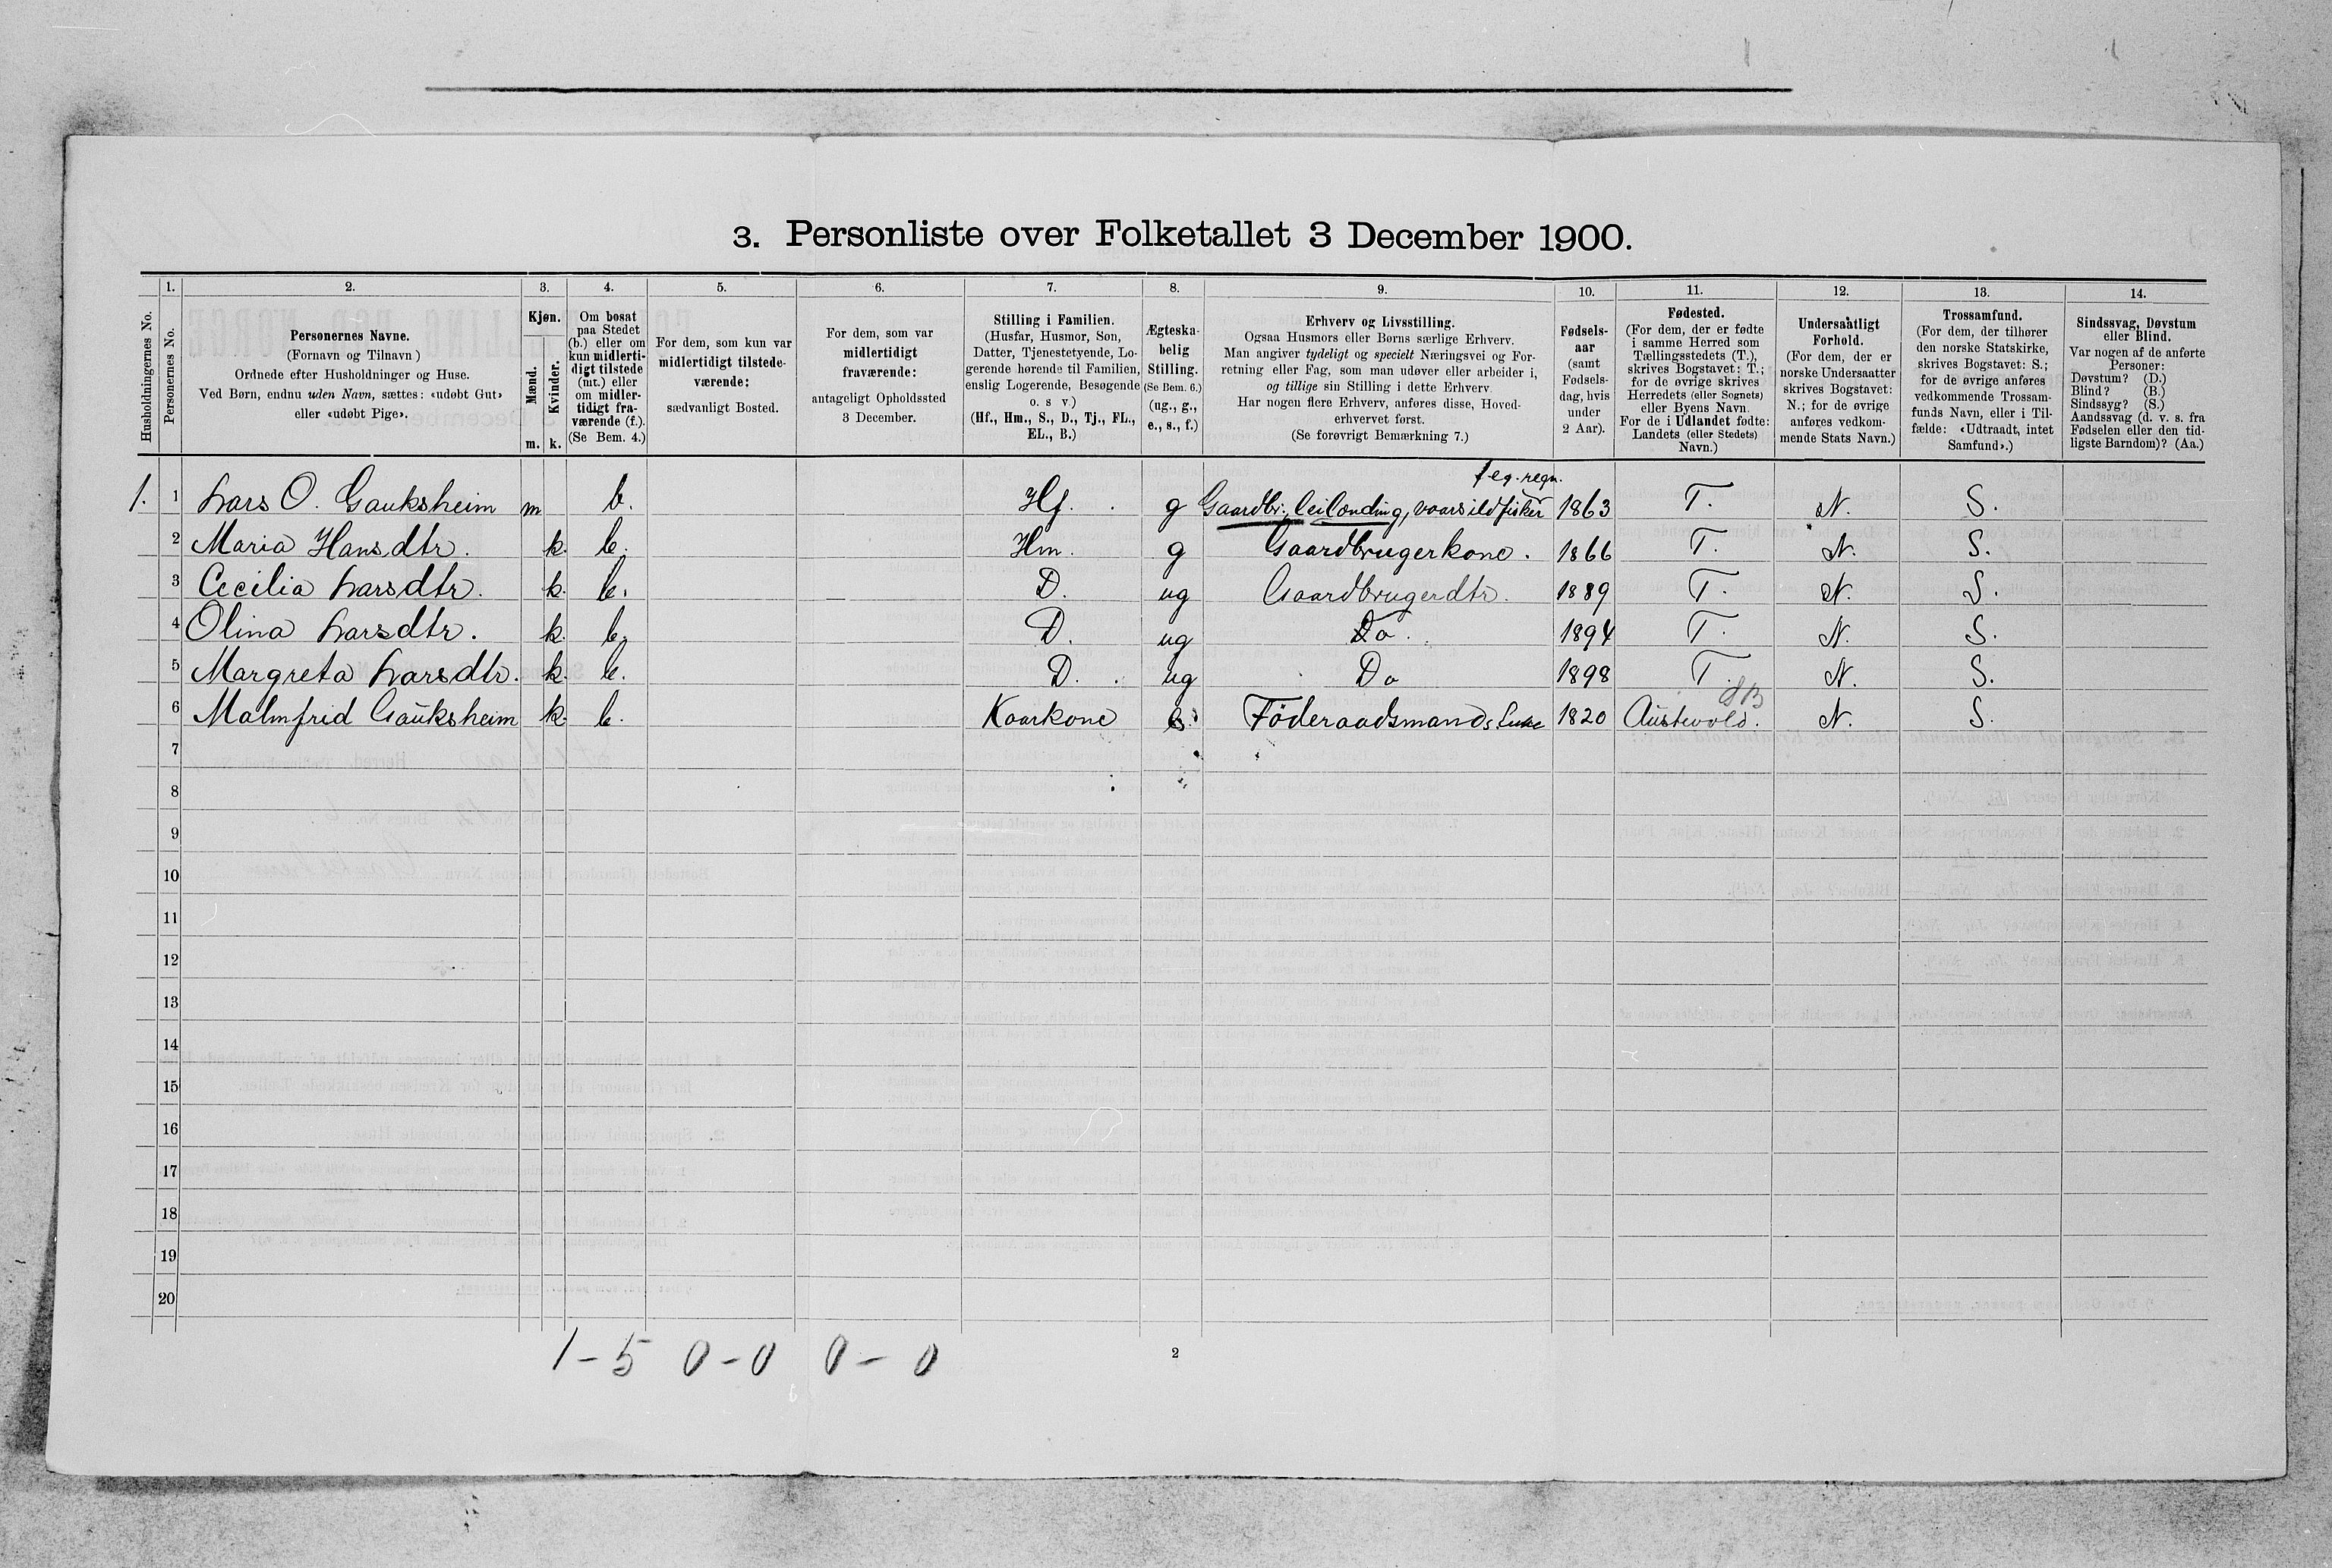 3. Personliste over Folketallet 3 December 1900.
1. 2. 3. 4. 5. 6. 7. 8. 9. 10. 11. 12. 13. 14.
Husholdningernes No.
Personernes No.
Personernes Navne.
(Fornavn og Tilnavn)
Ordnede efter Husholdninger og Huse.
Ved Børn, endnu uden Navn, sættes: «udøbt Gut»
eller «udøbt Pige».
Kjøn.
Mænd.
Kvinder.
m. k.
Om bosat
paa Stedet
(b.) eller om
kun midlerti-
digt tilstede
(mt.) eller
om midler-
tidigt fra-
værende (f.).
(Se Bem. 4.)
For dem, som kun var
midlertidigt tilstede-
værende:
sædvanligt Bosted.
For dem, som var
midlertidigt
fraværende:
antageligt Opholdssted
3 December.
Stilling i Familien.
(Husfar, Husmor, Søn,
Datter, Tjenestetyende, Lo-
gerende hørende til Familien,
enslig Logerende, Besøgende
o. s v)
(Hf., Hm., S., D., Tj., FL.,
EL., B.)
Ægteska-
belig
Stilling.
(Se Bem. 6.)
(ug., g.,
e., s., f.)
Erhverv og Livsstilling.
Ogsaa Husmors eller Børns særlige Erhverv.
Man angiver tydeligt og specielt Næringsvei og For-
retning eller Fag, som man udøver eller arbeider i,
og tillige sin Stilling i dette Erhverv.
Har nogen flere Erhverv, anføres disse, Hoved-
erhvervet først.
(Se forøvrigt Bemærkning 7.)
Fødsels-
aar
(samt
Fødsels-
dag, hvis
under
2 Aar).
Fødested.
(For dem, der er fødte
i samme Herred som
Tællingsstedets (T.),
skrives Bogstavet: T.;
for de øvrige skrives
Herredets (eller Sognets)
eller Byens Navn.
For de i Udlandet fødte:
Landets (eller Stedets)
Navn.)
Undersaatligt
Forhold.
(For dem, der er
norske Undersaatter
skrives Bogstavet:
N.; for de øvrige
anføres vedkom-
mende Stats Navn.)
Trossamfund.
(For dem, der tilhører
den norske Statskirke,
skrives Bogstavet: S.;
for de øvrige anføres
vedkommende Trossam-
funds Navn, eller i Til-
fælde: «Udtraadt, intet
Samfund».)
Sindssvag, Døvstum
eller Blind.
Var nogen af de anførte
Personer:
Døvstum? (D.)
Blind? (B.)
Sindssyg? (S.)
Aandssvag (d. v. s. fra
Fødselen eller den tid-
ligste Barndom)? (Aa.)
1. 1 Lars O. Gauksheim m b. Hf. g Gaardbr., leilænding, vaarsildfisker 1863 T. N. S.
2 Maria Hansdtr. k. b. Hm. g Gaardbrugerkone. 1866 T. N. S.
3 Cecilia Larsdtr. k. b. D. ug Gaardbrugerdtr. 1889 T. N. S.
4 Olina Larsdtr. k. b. D. ug Do. 1894 T. N. S.
5 Margreta Larsdtr. k. b. D. ug Do 1898 T. N. S.
6 Malmfrid Gauksheim k. b. Kaarkone Föderaadsmands Enke 1820 Austevold. N. S.
7
8
9
10
11
12
13
14
15
16
17
18
19
20
1-5 0-0 0-0
2